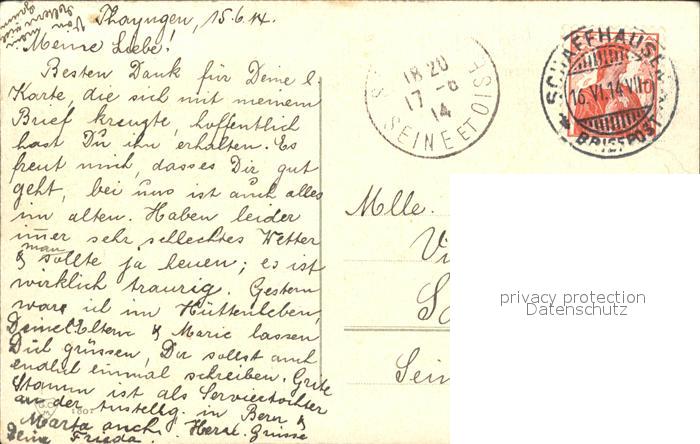 Thayngen, 15.6.14.
Meine Liebe!
Besten Dank für Deine l.
Karte, die sich mit meinem
Brief kreuzte, hoffentlich
hast Du ihn erhalten. Es
freut mich, dasses Dir gut
geht, bei uns ist auch alles
im alten. Haben leider
immer sehr schlechtes Wetter
& man sollte ja heuen; es ist
wirklich traurig. Gestern
ware ich im Hüttenleben,
Deine Eltern & Marie lassen
Dich grüssen, Du sollst auch
endlich einmal schreiben. Grite
Stamm ist als Serviertochter
an der Ausstellg. in Bern &
Marta auch. Herzl. Grüsse
Deine Frieda.
1801
18 20
17 -6
14
SEINE ET OISE
SCHAFFHAUSEN
16.VI.14.VII
BRIEFPOST
10
Mlle.
Vi
Sein
privacy protection
Datenschutz